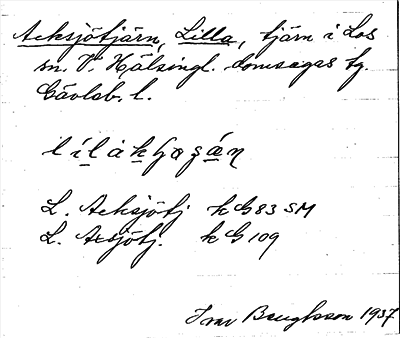 Acksjötjärn, Lilla, tjärn i Los
sn. V. Hälsingl. domsagas tg.
Gävleb. l.
L. Acksjötj k G 83 SM
L. Axsjötj. k G 109
Ivar Bengtsson 1937